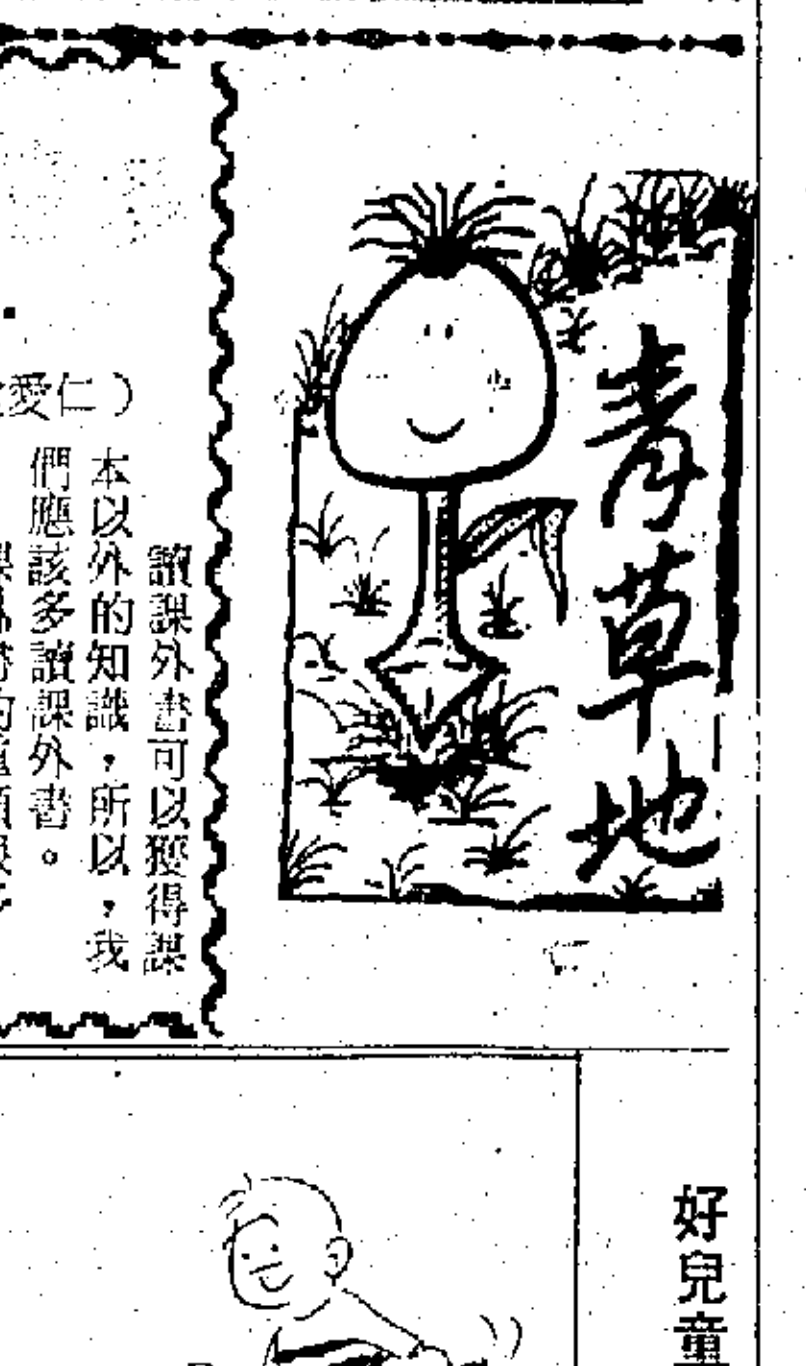 青草地
愛仁）
讀課外書可以獲得課
本以外的知識，所以，我
們應該多讀課外書。
好兒童